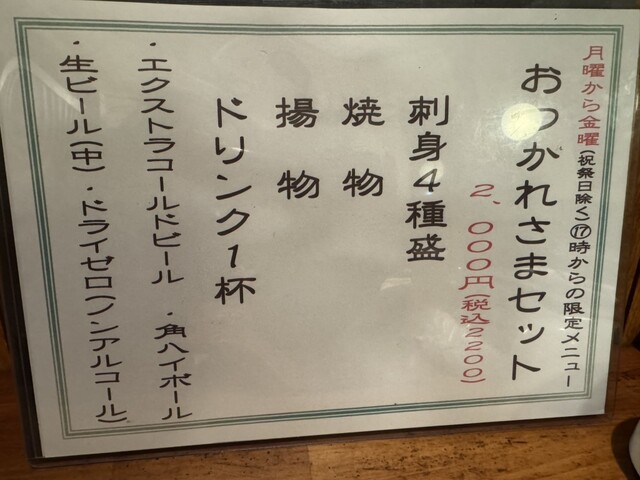 月曜から金曜(祝祭日除く)⑰時からの限定メニュー
おつかれさまセット
2、000円(税込2200)
刺身4種盛
焼物
揚物
ドリンク1杯
・エクストラコールドビール ・角ハイボール
・生ビール(中)・ドライゼロ(ノンアルコール)